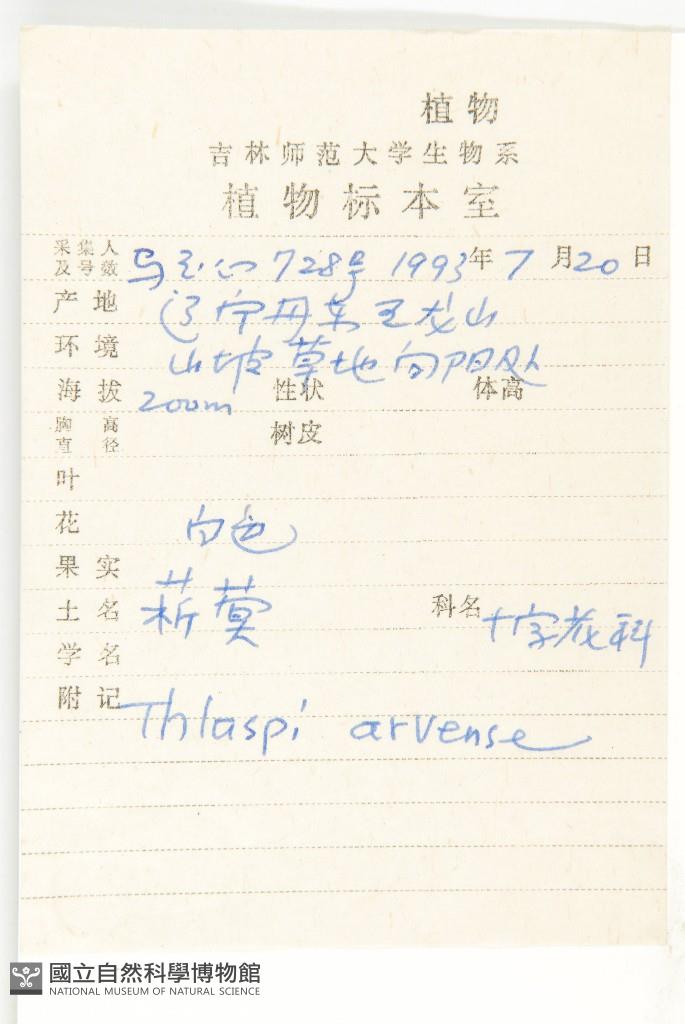 植物
吉林师范大学生物系
植物标本室
采集人及号数 728号 1993年7月20日
产地 辽宁丹东五龙山
环境 山坡草地向阳处
海拔 200m 性状 体高
胸高直径 树皮
叶
花 白色
果实
土名 菥蓂 科名 十字花科
学名
附记 Thlaspi arvense
國立自然科學博物館
NATIONAL MUSEUM OF NATURAL SCIENCE